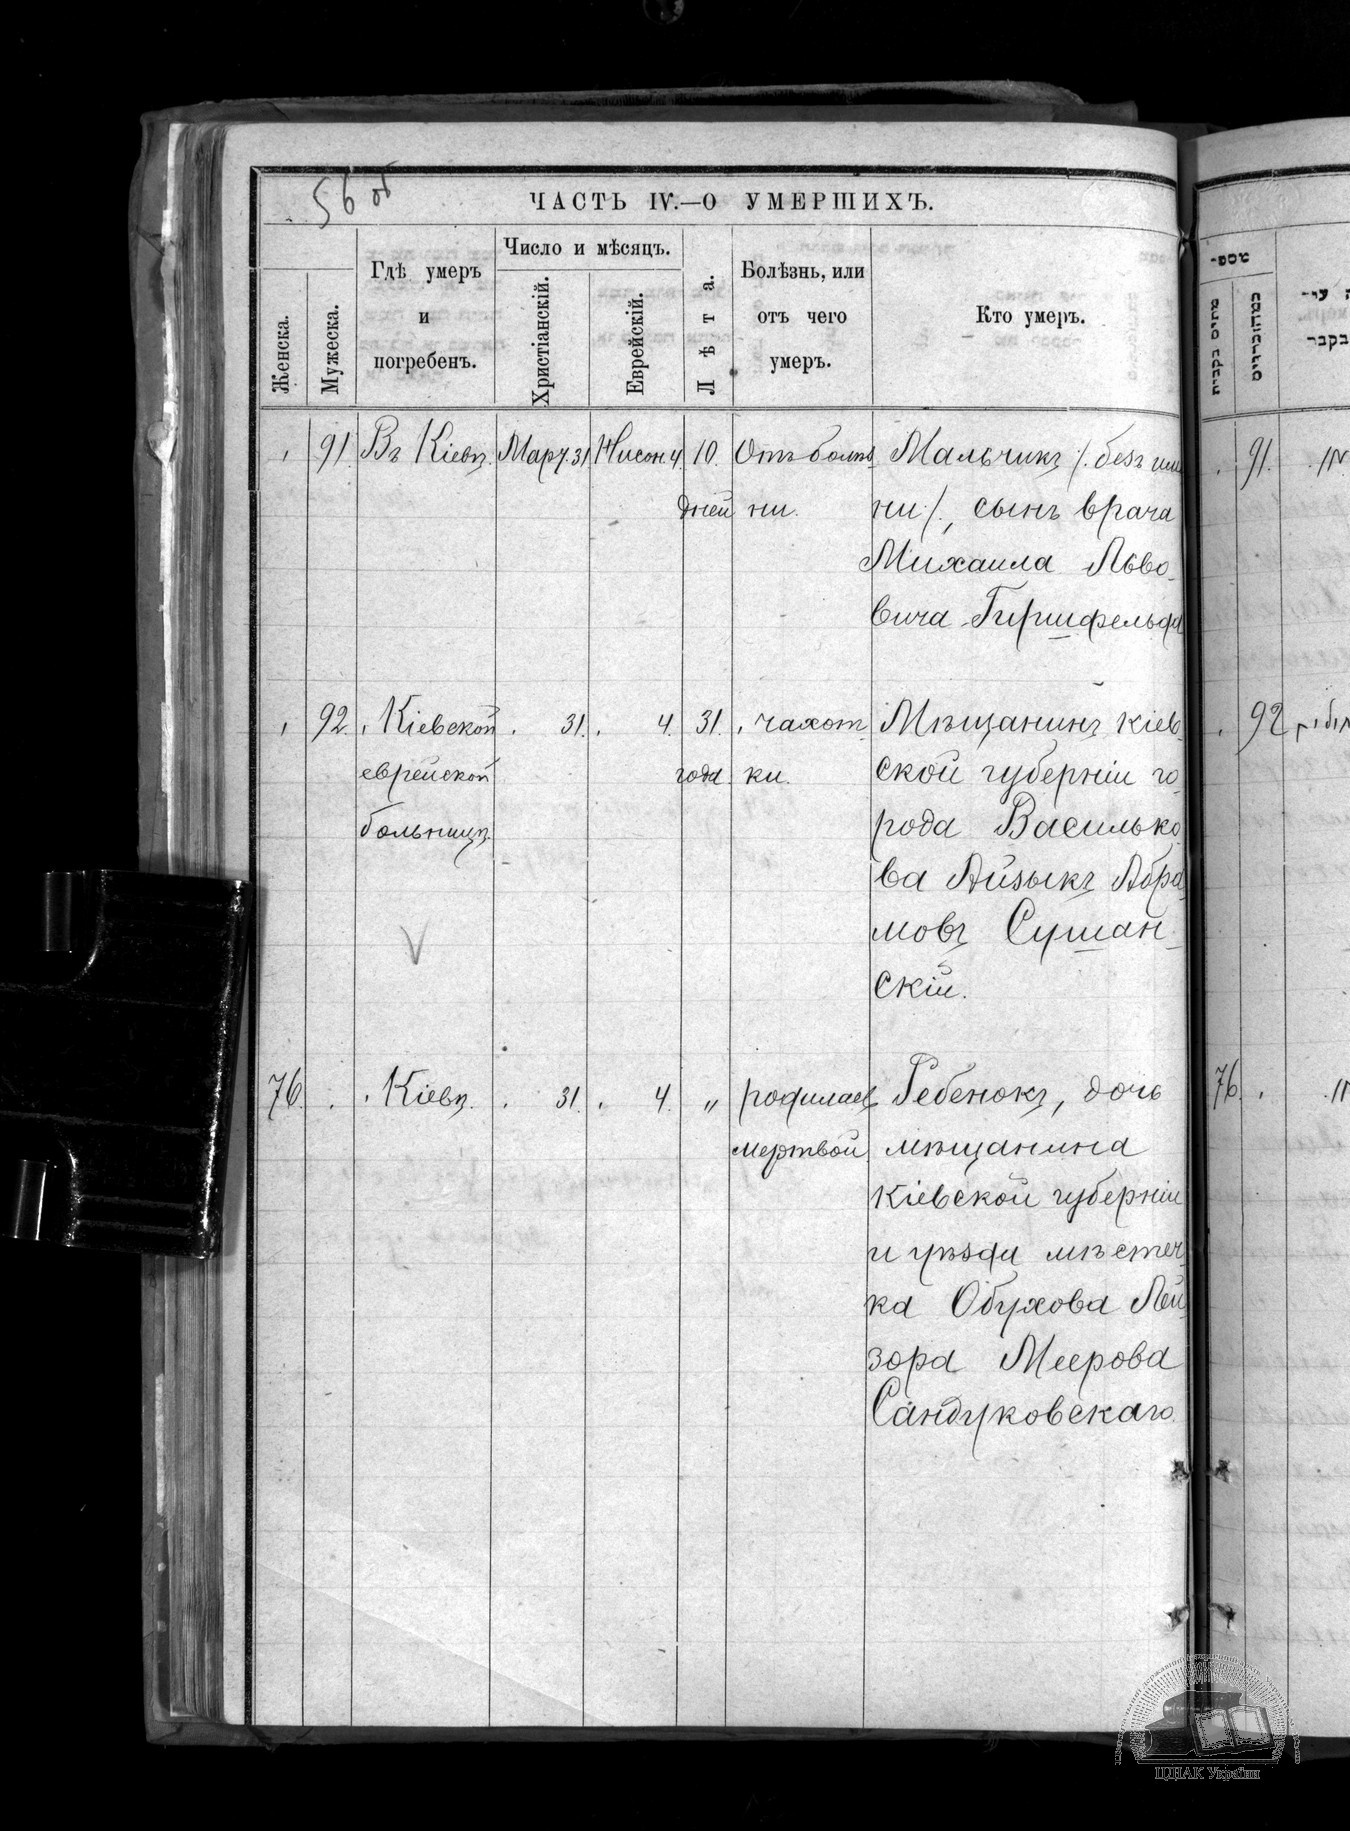 56 об
ЧАСТЬ IV.—О УМЕРШИХЪ.
Женска.
Мужеска.
Гдѣ умеръ
и
погребенъ.
Число и мѣсяцъ.
Христіанскій.
Еврейскій.
Лѣта.
Болѣзнь, или
отъ чего
умеръ.
Кто умеръ.
91. Въ Кіевѣ. Март 31. Нисон 4. 10. Отъ болѣз Мальчикъ /. безъ име
дней ни. ни /., сынъ врача
Михаила Льво-
вича Гиршфельда
92. Кіевской 31. 4. 31. чахот- Мѣщанинъ Кіев-
еврейской года ки. ской губерніи го-
больницѣ рода Василько-
ва Айзыкъ Абра-
мовъ Сушан-
скій.
76. Кіевѣ. 31. 4. „ родилась Ребенокъ, дочь
мертвой мѣщанина
Кіевской губерніи
и уѣзда мѣстеч-
ка Обухова Лей-
зора Меерова
Сандуковскаго.
91.
92
76.
ЦДІАК України